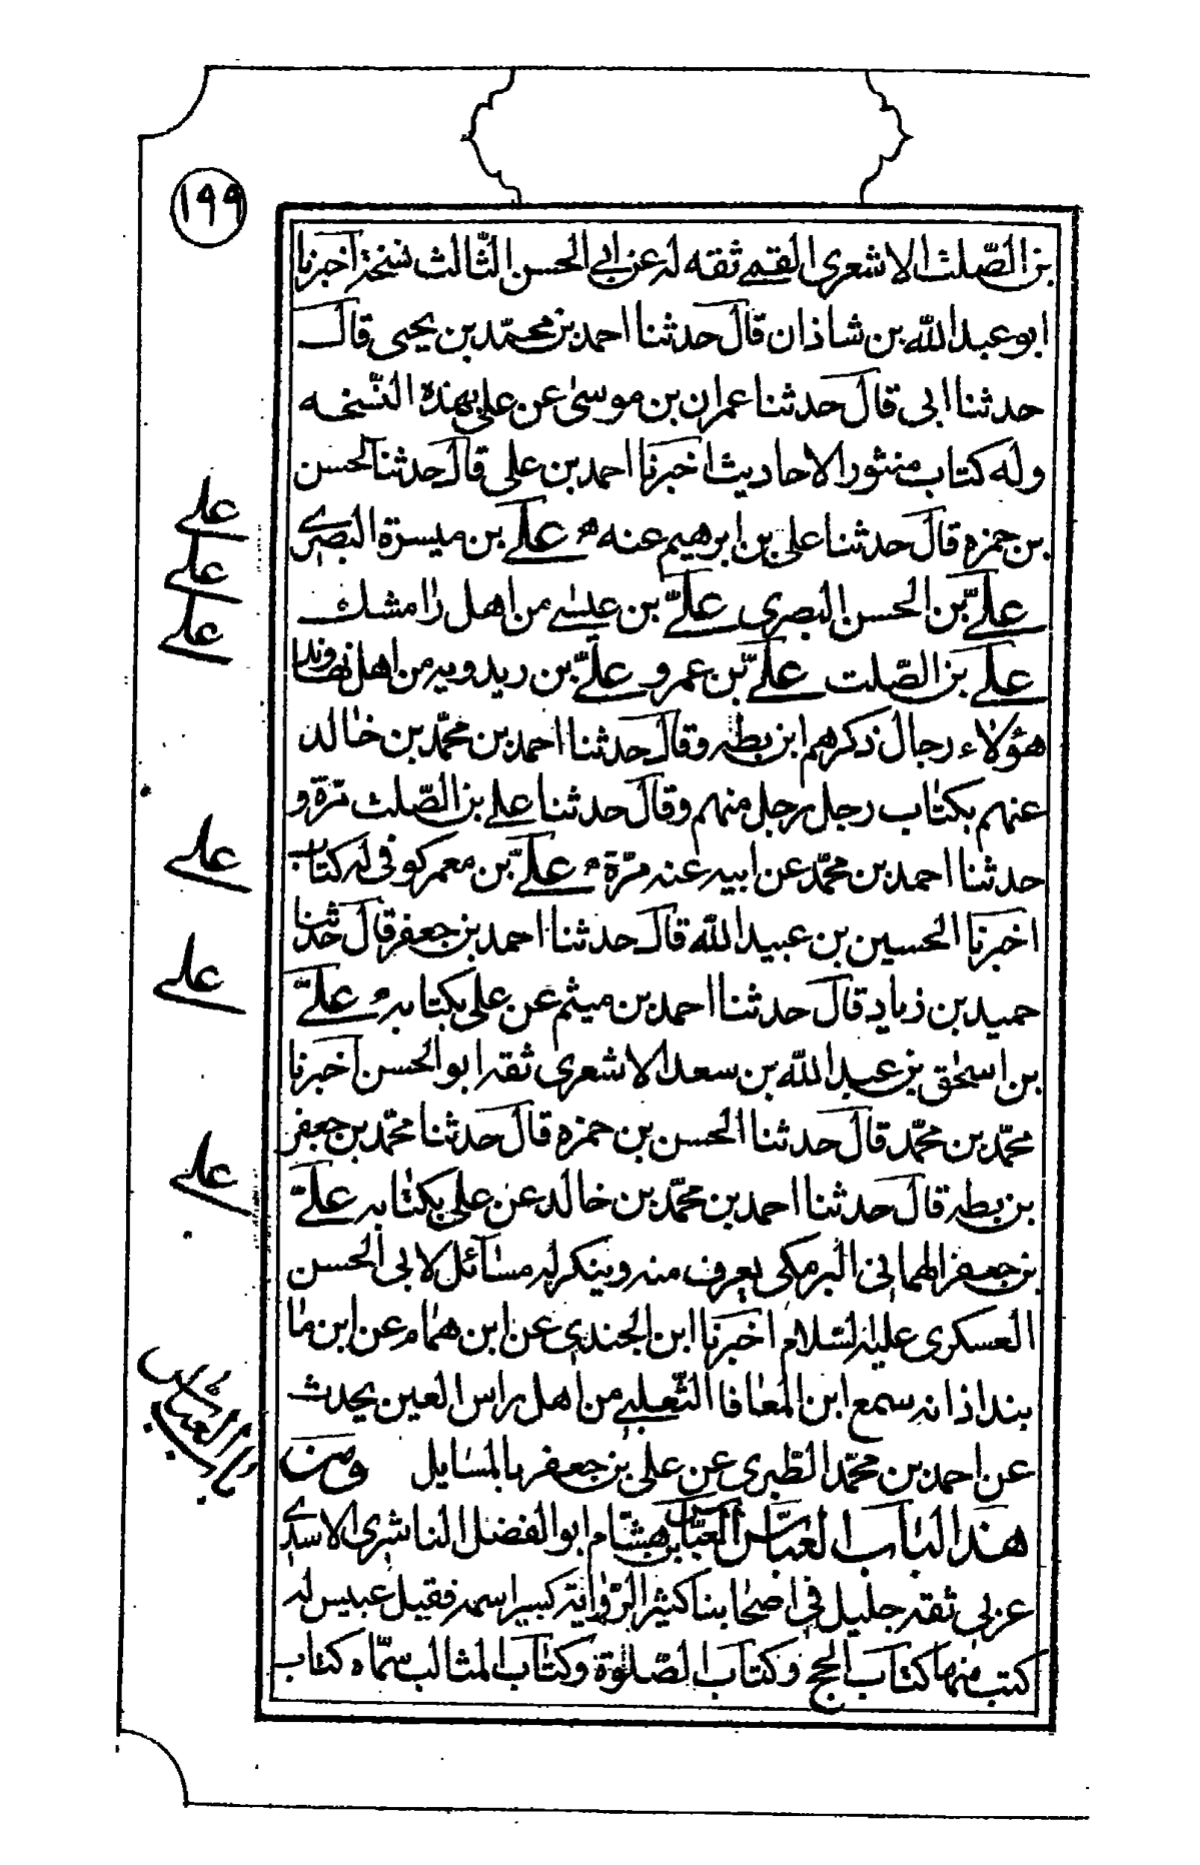 ١٩٩
بن الصّلت الاشعرى القمى ثقه له عن ابى الحسن الثّالث نسخة اخبرنا
ابو عبد الله بن شاذان قال حدثنا احمد بن محمّد بن يحيى قال
حدثنا ابى قال حدثنا عمران بن موسىٰ عن على بهذه النّسخه
وله كتاب منثور الاحاديث اخبرنا احمد بن على قال حدثنا الحسن
بن حمزه قال حدثنا على بن ابرهيم عنه علىّ بن ميسرة البصرى
علىّ بن الحسن البصرى علىّ بن عيسى من اهل رامشك
علىّ بن الصّلت علىّ بن عمرو علىّ بن ريدويه من اهل نهاوند
هؤلاء رجال ذكرهم ابن بطه وقال حدثنا احمد بن محمّد بن خالد
عنهم بكتاب رجل رجل منهم وقال حدثنا على بن الصّلت مرّة و
حدثنا احمد بن محمّد عن ابيه عنه مرّة علىّ بن معمر كوفى له كتاب
اخبرنا الحسين بن عبيد الله قال حدثنا احمد بن جعفر قال حدثنا
حميد بن زياد قال حدثنا احمد بن ميثم عن على بكتابه علىّ
بن اسحٰق بن عبد الله بن سعد الاشعرى ثقه ابو الحسن اخبرنا
محمّد بن محمّد قال حدثنا الحسن بن حمزه قال حدثنا محمّد بن جعفر
بن بطه قال حدثنا احمد بن محمّد بن خالد عن على بكتابه علىّ
بن جعفر الهمانى البرمكى يعرف منه وينكر له مسآئل لابى الحسن
العسكرى عليه السّلام اخبرنا ابن الجندى عن ابن همام عن ابن ما
بنداذ انه سمع ابن المعافا الثّعلبى من اهل راس العين يحدث
عن احمد بن محمّد الطّبرى عن على بن جعفر بالمسايل ومن
هذا الباب العبّاس العبّاس بن هشام ابو الفضل الناشرى الاسدى
عربى ثقه جليل فى اصحابنا كثير الرّواية كسر اسمه فقيل عبيس له
كتب منها كتاب الحج وكتاب الصّلوة وكتاب المثالب سمّاه كتاب
على
على
على
على
على
على
باب العبّاس